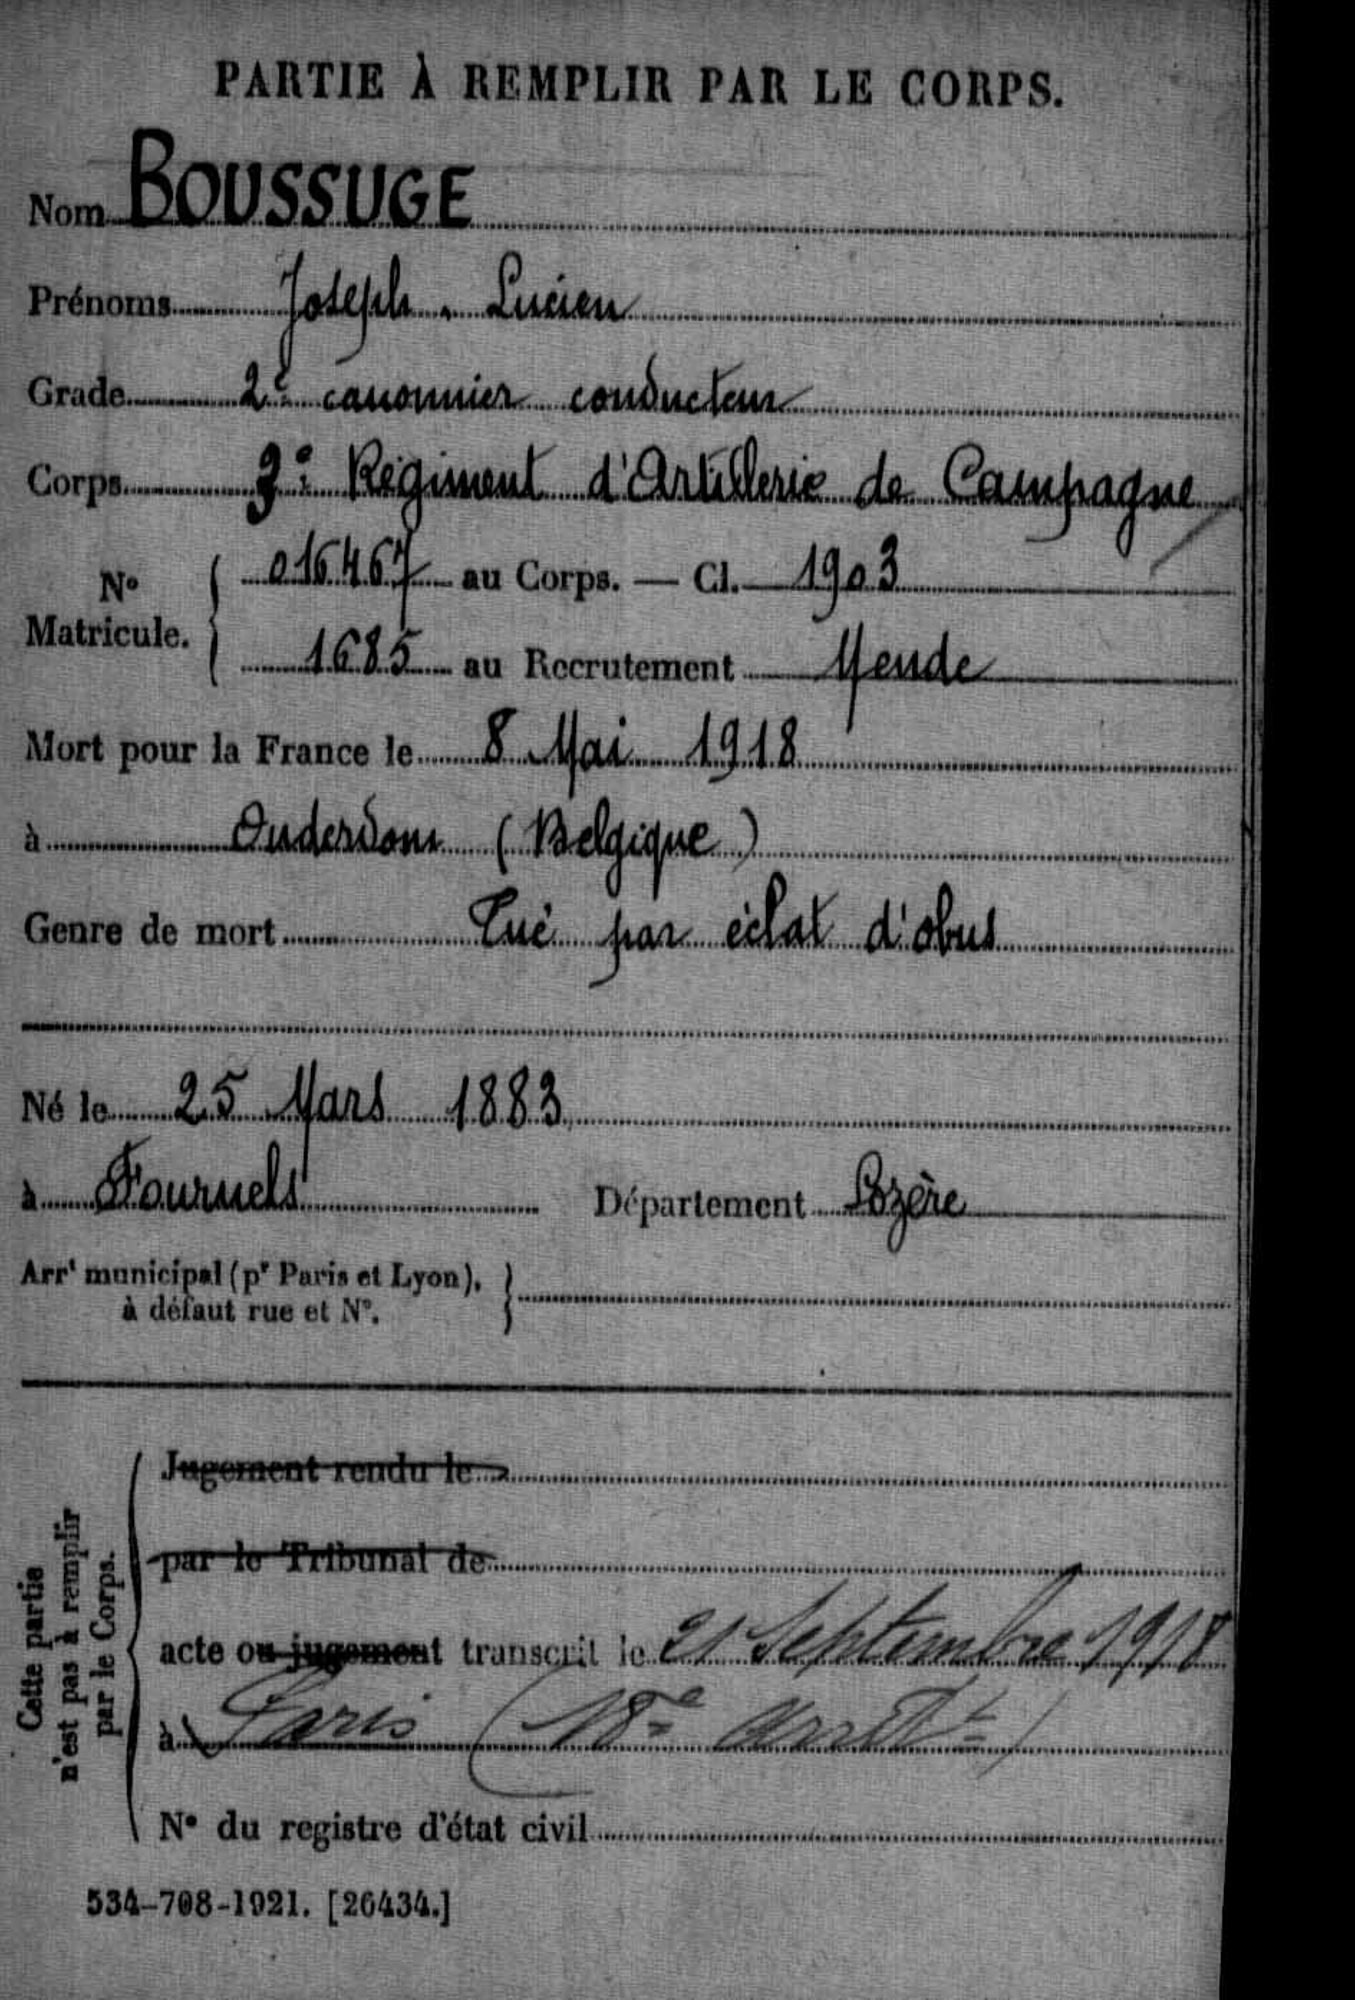 PARTIE À REMPLIR PAR LE CORPS.
Nom BOUSSUGE
Prénoms Joseph. Lucien
Grade 2e canonnier conducteur
Corps 3e Régiment d'Artillerie de Campagne
No Matricule. { 016467 au Corps. — Cl. 1903
1685 au Recrutement Mende
Mort pour la France le 8 Mai 1918
à Ouderdom (Belgique)
Genre de mort Tué par éclat d'obus
Né le 25 Mars 1883
à Fournels Département Lozère
Arrt municipal (pr Paris et Lyon), à défaut rue et No. }
Cette partie n'est pas à remplir par le Corps.
Jugement rendu le
par le Tribunal de
acte ou jugement transcrit le 21 Septembre 1918
à Paris (18e Arrdt)
No du registre d'état civil
534-708-1921. [26434.]